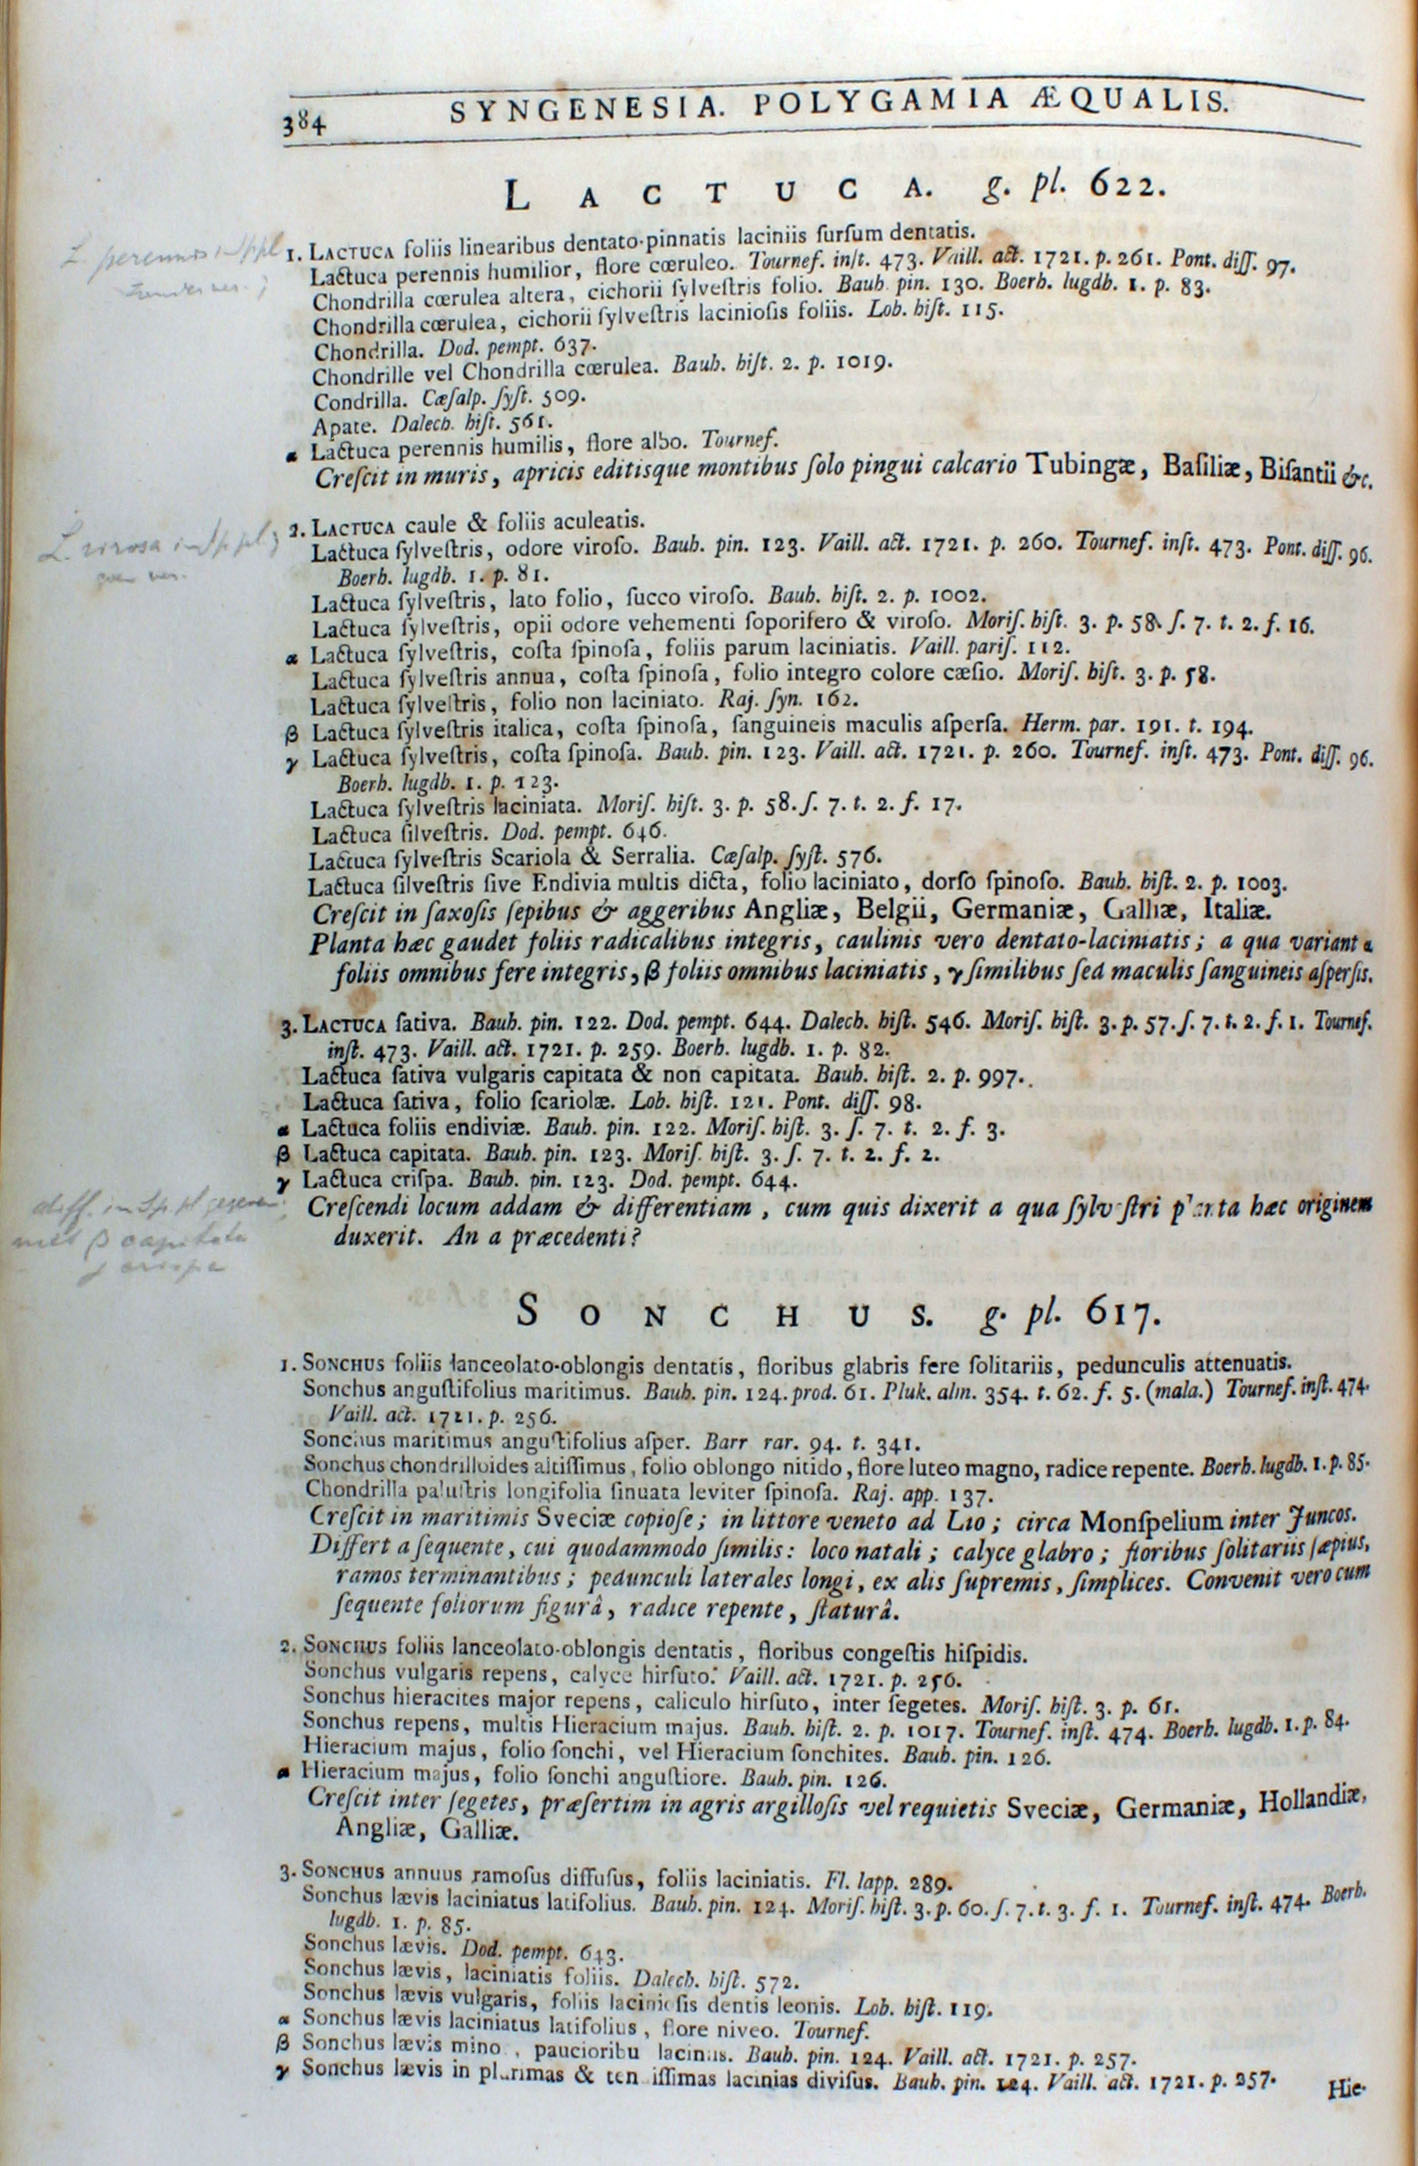 384 SYNGENESIA. POLYGAMIA ÆQUALIS.
LACTUCA. g. pl. 622.
1. LACTUCA foliis linearibus dentato-pinnatis laciniis ſurſum dentatis.
Lactuca perennis humilior, flore cœruleo. Tournef. inſt. 473. Vaill. act. 1721. p. 261. Pont. diſſ. 97.
Chondrilla cœrulea altera, cichorii ſylveſtris folio. Bauh. pin. 130. Boerh. lugdb. 1. p. 83.
Chondrilla cœrulea, cichorii ſylveſtris lacinioſis foliis. Lob. hiſt. 115.
Chondrilla. Dod. pempt. 637.
Chondrille vel Chondrilla cœrulea. Bauh. hiſt. 2. p. 1019.
Condrilla. Cæſalp. ſyſt. 509.
Apate. Dalech. hiſt. 561.
α Lactuca perennis humilis, flore albo. Tournef.
Creſcit in muris, apricis editisque montibus ſolo pingui calcario Tubingæ, Baſiliæ, Biſantii &c.
L. perennis in Sp pl
2. LACTUCA caule & foliis aculeatis.
Lactuca ſylveſtris, odore viroſo. Bauh. pin. 123. Vaill. act. 1721. p. 260. Tournef. inſt. 473. Pont. diſſ. 96.
Boerh. lugdb. 1. p. 81.
Lactuca ſylveſtris, lato folio, ſucco viroſo. Bauh. hiſt. 2. p. 1002.
Lactuca ſylveſtris, opii odore vehementi ſoporifero & viroſo. Moriſ. hiſt. 3. p. 58. ſ. 7. t. 2. f. 16.
α Lactuca ſylveſtris, coſta ſpinoſa, foliis parum laciniatis. Vaill. pariſ. 112.
Lactuca ſylveſtris annua, coſta ſpinoſa, folio integro colore cæſio. Moriſ. hiſt. 3. p. 58.
Lactuca ſylveſtris, folio non laciniato. Raj. ſyn. 162.
β Lactuca ſylveſtris italica, coſta ſpinoſa, ſanguineis maculis aſperſa. Herm. par. 191. t. 194.
γ Lactuca ſylveſtris, coſta ſpinoſa. Bauh. pin. 123. Vaill. act. 1721. p. 260. Tournef. inſt. 473. Pont. diſſ. 96.
Boerh. lugdb. 1. p. 123.
Lactuca ſylveſtris laciniata. Moriſ. hiſt. 3. p. 58. ſ. 7. t. 2. f. 17.
Lactuca ſilveſtris. Dod. pempt. 646.
Lactuca ſylveſtris Scariola & Serralia. Cæſalp. ſyſt. 576.
Lactuca ſilveſtris ſive Endivia multis dicta, folio laciniato, dorſo ſpinoſo. Bauh. hiſt. 2. p. 1003.
Creſcit in ſaxoſis ſepibus & aggeribus Angliæ, Belgii, Germaniæ, Galliæ, Italiæ.
Planta hæc gaudet foliis radicalibus integris, caulinis vero dentato-laciniatis; a qua variant α
foliis omnibus fere integris, β foliis omnibus laciniatis, γ ſimilibus ſed maculis ſanguineis aſperſis.
L. virosa in Sp pl
3. LACTUCA ſativa. Bauh. pin. 122. Dod. pempt. 644. Dalech. hiſt. 546. Moriſ. hiſt. 3. p. 57. ſ. 7. t. 2. f. 1. Tournef.
inſt. 473. Vaill. act. 1721. p. 259. Boerh. lugdb. 1. p. 82.
Lactuca ſativa vulgaris capitata & non capitata. Bauh. hiſt. 2. p. 997.
Lactuca ſativa, folio ſcariolæ. Lob. hiſt. 121. Pont. diſſ. 98.
α Lactuca foliis endiviæ. Bauh. pin. 122. Moriſ. hiſt. 3. ſ. 7. t. 2. f. 3.
β Lactuca capitata. Bauh. pin. 123. Moriſ. hiſt. 3. ſ. 7. t. 2. f. 2.
γ Lactuca criſpa. Bauh. pin. 123. Dod. pempt. 644.
Creſcendi locum addam & differentiam, cum quis dixerit a qua ſylveſtri planta hæc originem
duxerit. An a præcedenti?
diff. in Sp pl
β capitata
γ crispa
SONCHUS. g. pl. 617.
1. SONCHUS foliis lanceolato-oblongis dentatis, floribus glabris fere ſolitariis, pedunculis attenuatis.
Sonchus anguſtifolius maritimus. Bauh. pin. 124. prod. 61. Pluk. alm. 354. t. 62. f. 5. (mala.) Tournef. inſt. 474.
Vaill. act. 1721. p. 256.
Sonchus maritimus anguſtifolius aſper. Barr rar. 94. t. 341.
Sonchus chondrilloides altiſſimus, folio oblongo nitido, flore luteo magno, radice repente. Boerh. lugdb. 1. p. 85.
Chondrilla paluſtris longifolia ſinuata leviter ſpinoſa. Raj. app. 137.
Creſcit in maritimis Sveciæ copioſe; in littore veneto ad Lio; circa Monſpelium inter Juncos.
Differt a ſequente, cui quodammodo ſimilis: loco natali; calyce glabro; floribus ſolitariis ſæpius,
ramos terminantibus; pedunculi laterales longi, ex alis ſupremis, ſimplices. Convenit vero cum
ſequente foliorum figurâ, radice repente, ſtaturâ.
2. SONCHUS foliis lanceolato-oblongis dentatis, floribus congeſtis hiſpidis.
Sonchus vulgaris repens, calyce hirſuto. Vaill. act. 1721. p. 256.
Sonchus hieracites major repens, caliculo hirſuto, inter ſegetes. Moriſ. hiſt. 3. p. 61.
Sonchus repens, multis Hieracium majus. Bauh. hiſt. 2. p. 1017. Tournef. inſt. 474. Boerh. lugdb. 1. p. 84.
Hieracium majus, folio ſonchi, vel Hieracium ſonchites. Bauh. pin. 126.
α Hieracium majus, folio ſonchi anguſtiore. Bauh. pin. 126.
Creſcit inter ſegetes, præſertim in agris argilloſis vel requietis Sveciæ, Germaniæ, Hollandiæ,
Angliæ, Galliæ.
3. SONCHUS annuus ramoſus diffuſus, foliis laciniatis. Fl. lapp. 289.
Sonchus lævis laciniatus latifolius. Bauh. pin. 124. Moriſ. hiſt. 3. p. 60. ſ. 7. t. 3. f. 1. Tournef. inſt. 474. Boerh.
lugdb. 1. p. 85.
Sonchus lævis. Dod. pempt. 643.
Sonchus lævis, laciniatis foliis. Dalech. hiſt. 572.
Sonchus lævis vulgaris, foliis lacinioſis dentis leonis. Lob. hiſt. 119.
α Sonchus lævis laciniatus latifolius, flore niveo. Tournef.
β Sonchus lævis minor, paucioribus laciniis. Bauh. pin. 124. Vaill. act. 1721. p. 257.
γ Sonchus lævis in plurimas & tenuiſſimas lacinias diviſus. Bauh. pin. 124. Vaill. act. 1721. p. 257.
Hie-